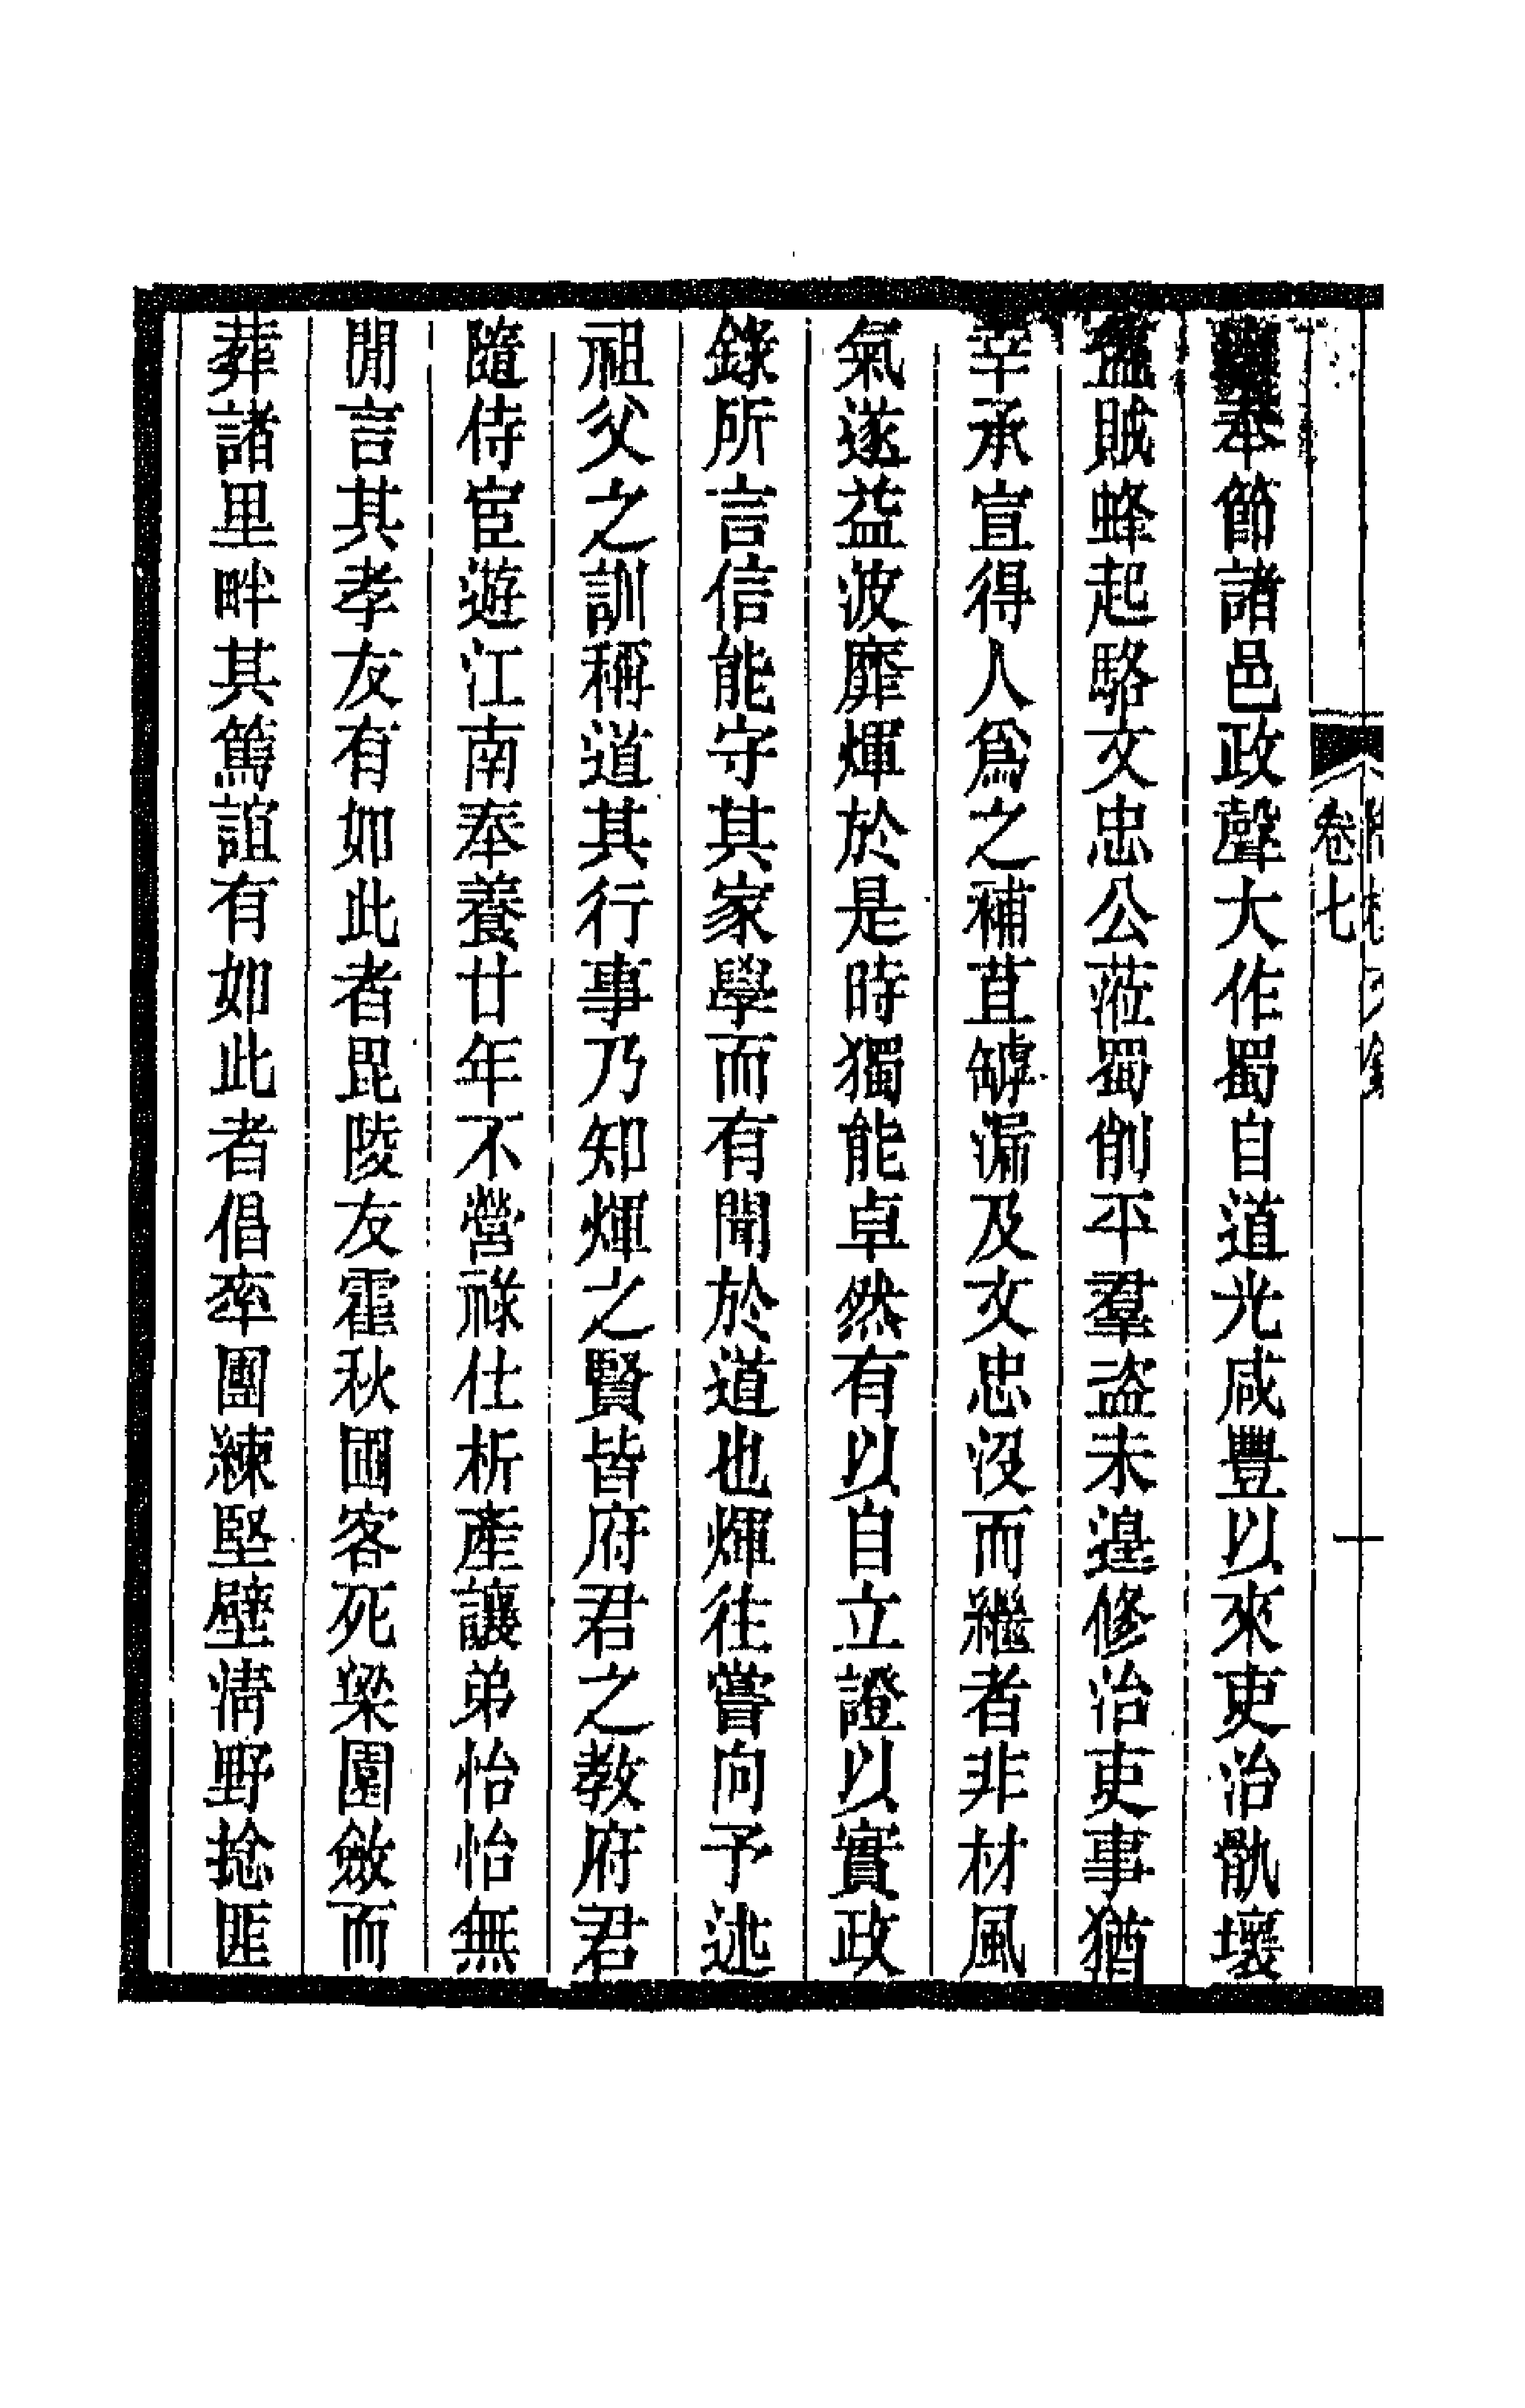 卷七
奉節諸邑政聲大作蜀自道光咸豐以來吏治骩壞
盜賊蜂起駱文忠公蒞蜀削平羣盜未遑修治吏事猶
幸承宣得人爲之補苴罅漏及文忠沒而繼者非材風
氣遂益波靡煇於是時獨能卓然有以自立證以實政
錄所言信能守其家學而有聞於道也煇往嘗向予述
祖父之訓稱道其行事乃知煇之賢皆府君之敎府君
隨侍宦遊江南奉養廿年不營祿仕析產讓弟怡怡無
閒言其孝友有如此者毘陵友霍秋圃客死梁園斂而
葬諸里畔其篤誼有如此者倡率團練堅壁淸野捻匪